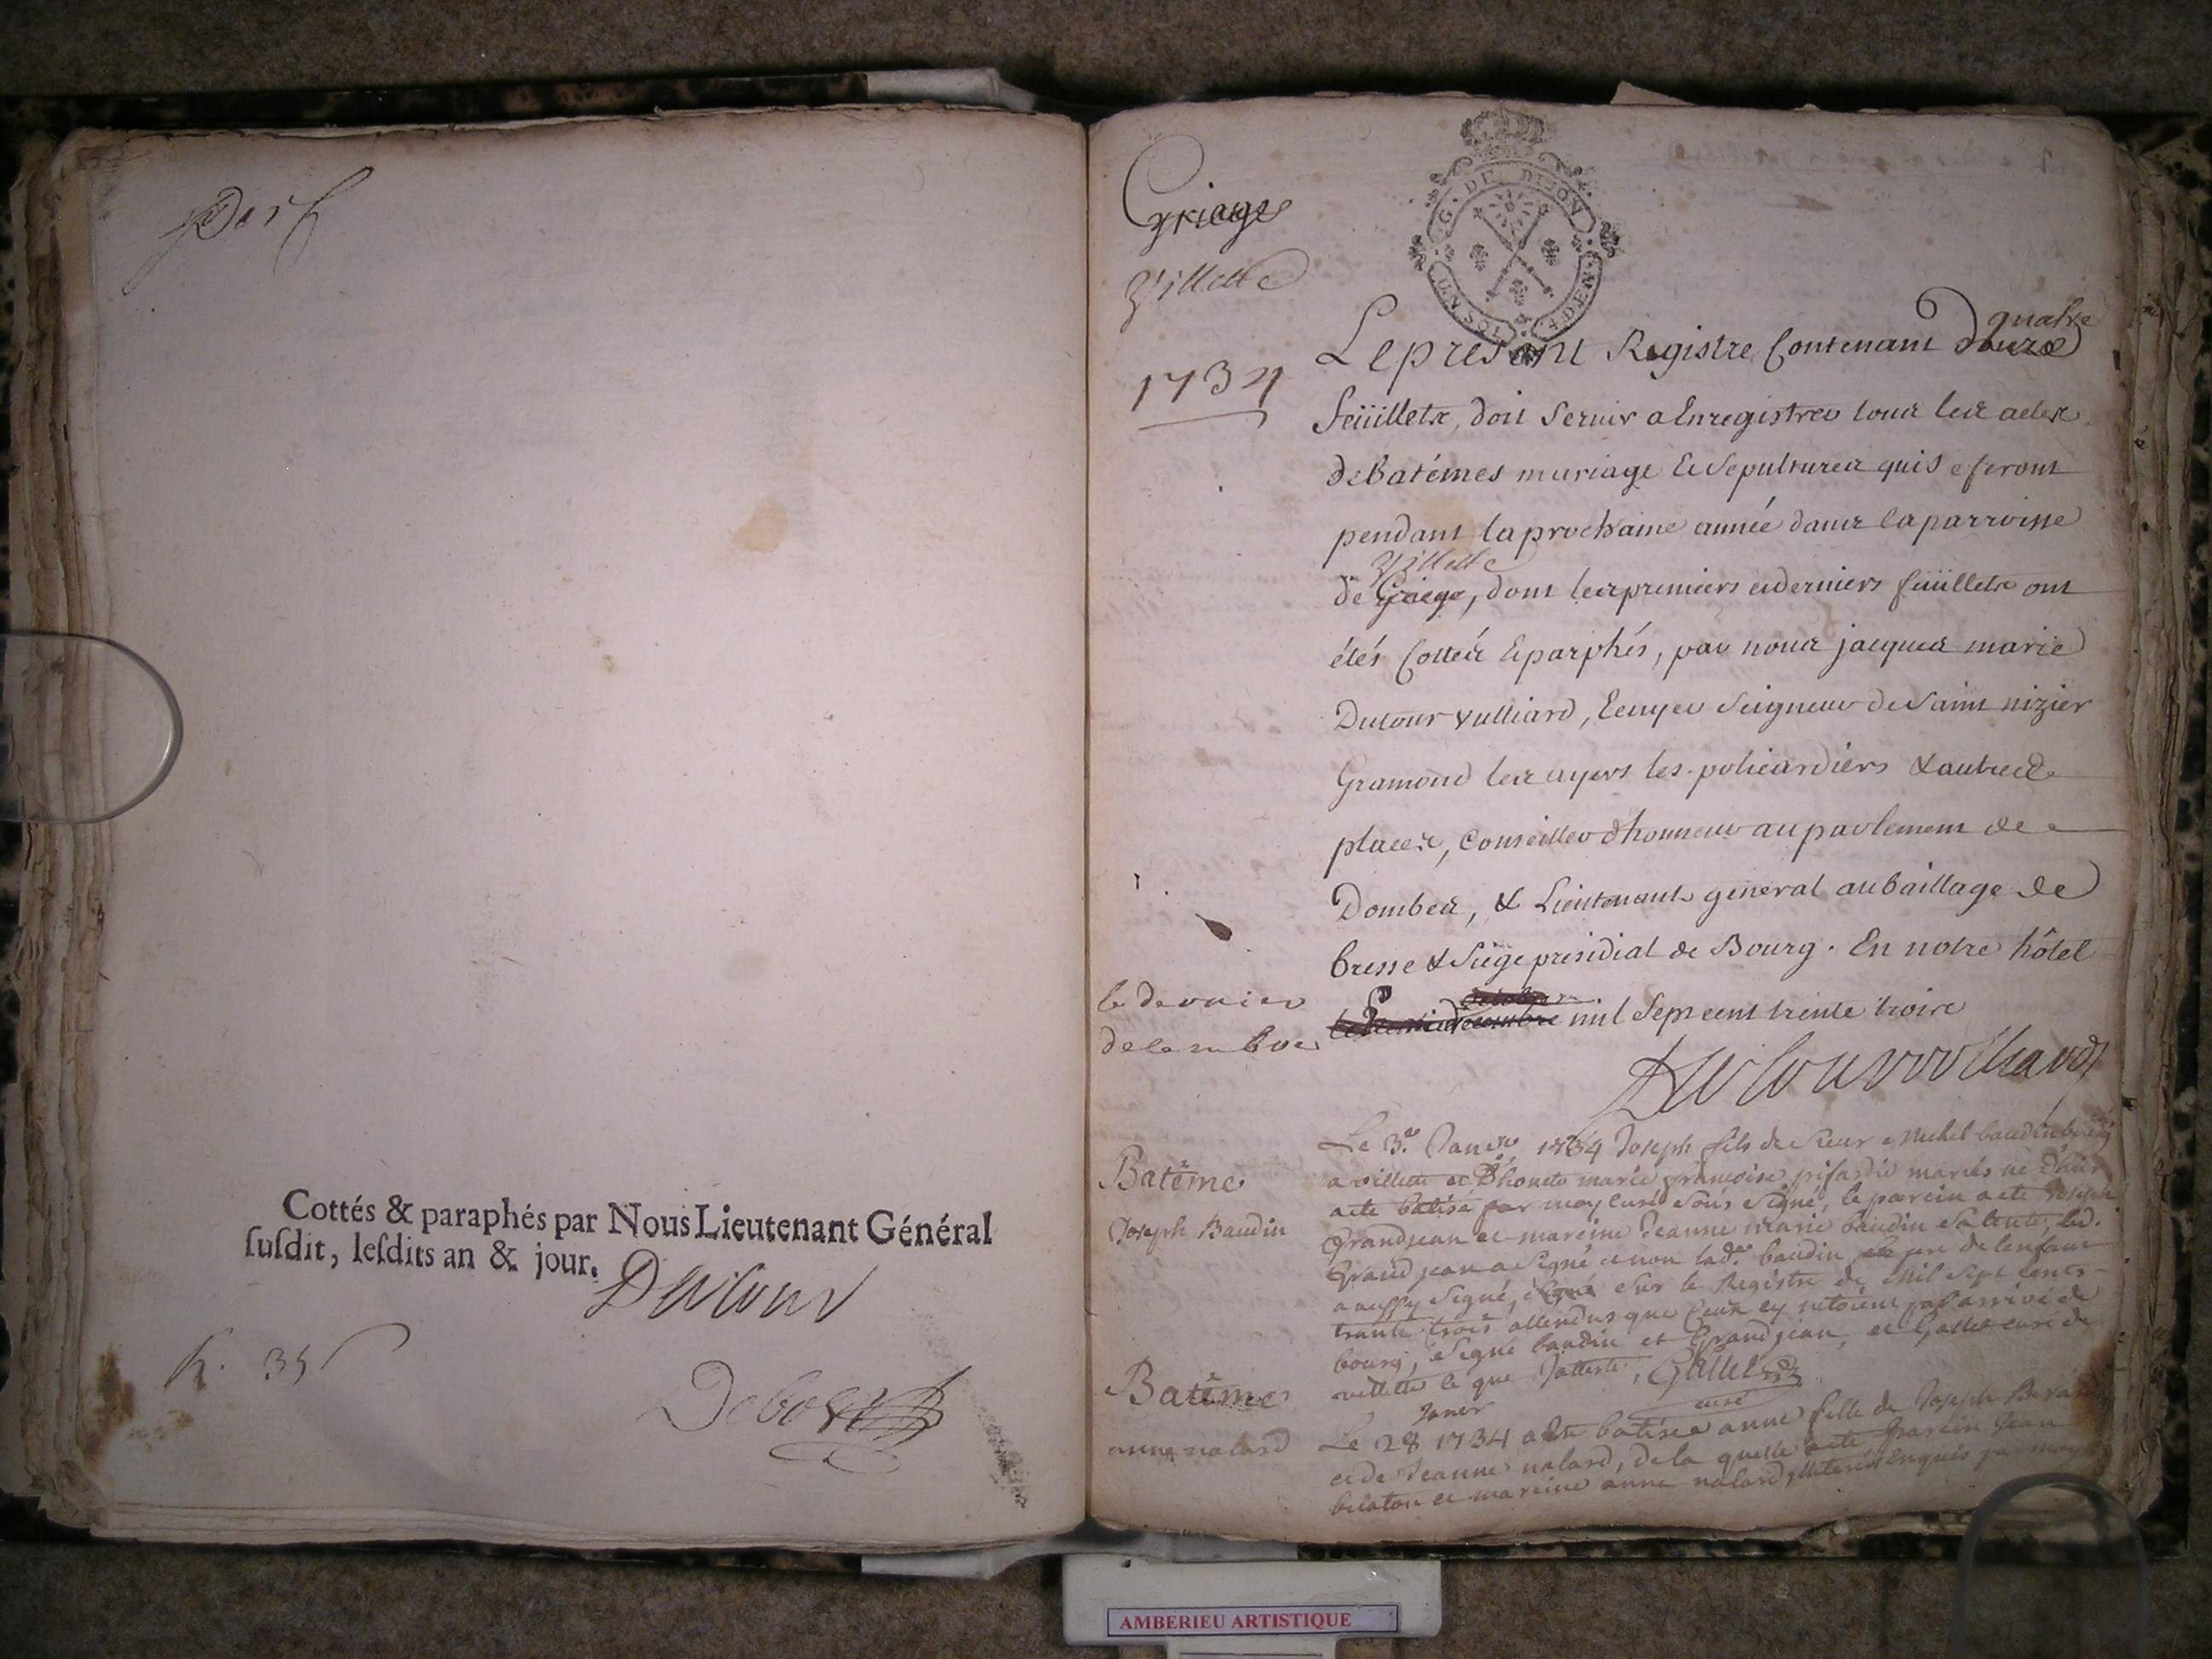 Cottés & paraphés par Nous Lieutenant Général
ſuſdit, leſdits an & jour.
Dutour
R. 35
Griage
Villette
1734
G. DE DIJON
UN SOL 4 DEN
quatre
Le present Registre Contenant douze
feüillets, doit Servir a Enregistrer tous les actes
de Batémes mariage & Sepultures qui se feront
pendant la prochaine année dans la parroisse
Villette
de Griege, dont les premiers et derniers feüillets ont
étés Cottés & parphés, par nous jacques marie
Dutour Vulliard, Ecuyer Seigneur de Saint nizier
Gramond les ayers les policardiers & autres
places, Conseiller dhonneur au parlement de
Dombes, & Lieutenant general au baillage de
bresse & Siège presidial de Bourg. En notre hôtel
le dernier
decembre
mil Sept cent trente trois
Dutour vulliard
Batême
Joseph Baudin
Le 3e. Janvr. 1734 Joseph fils de Sieur Michel baudin
a villette et honete marie françoise maries né
a ete batisé par moy curé sous signé, le parein a ete Joseph
Grandjean et mareine Jeanne Marie baudin sa tente, led.
Grand jean a signé et non lad. baudin pere de lenfant
a aussy signé, signé sur le Registre de Mil Sept cents
trante trois attendus que ceux cy netoient pas arrivé de
bourg, signé baudin et Grandjean, et Gallet curé de
villette ce que Jatteste, Gallet
curé
Batême
anne nalard
Janvr
Le 28 1734 a ete batisée anne fille de Joseph
et de Jeanne nalard, de la quelle a ete parein Jean
et mareine anne nalard illiterés enquis par moy
AMBERIEU ARTISTIQUE